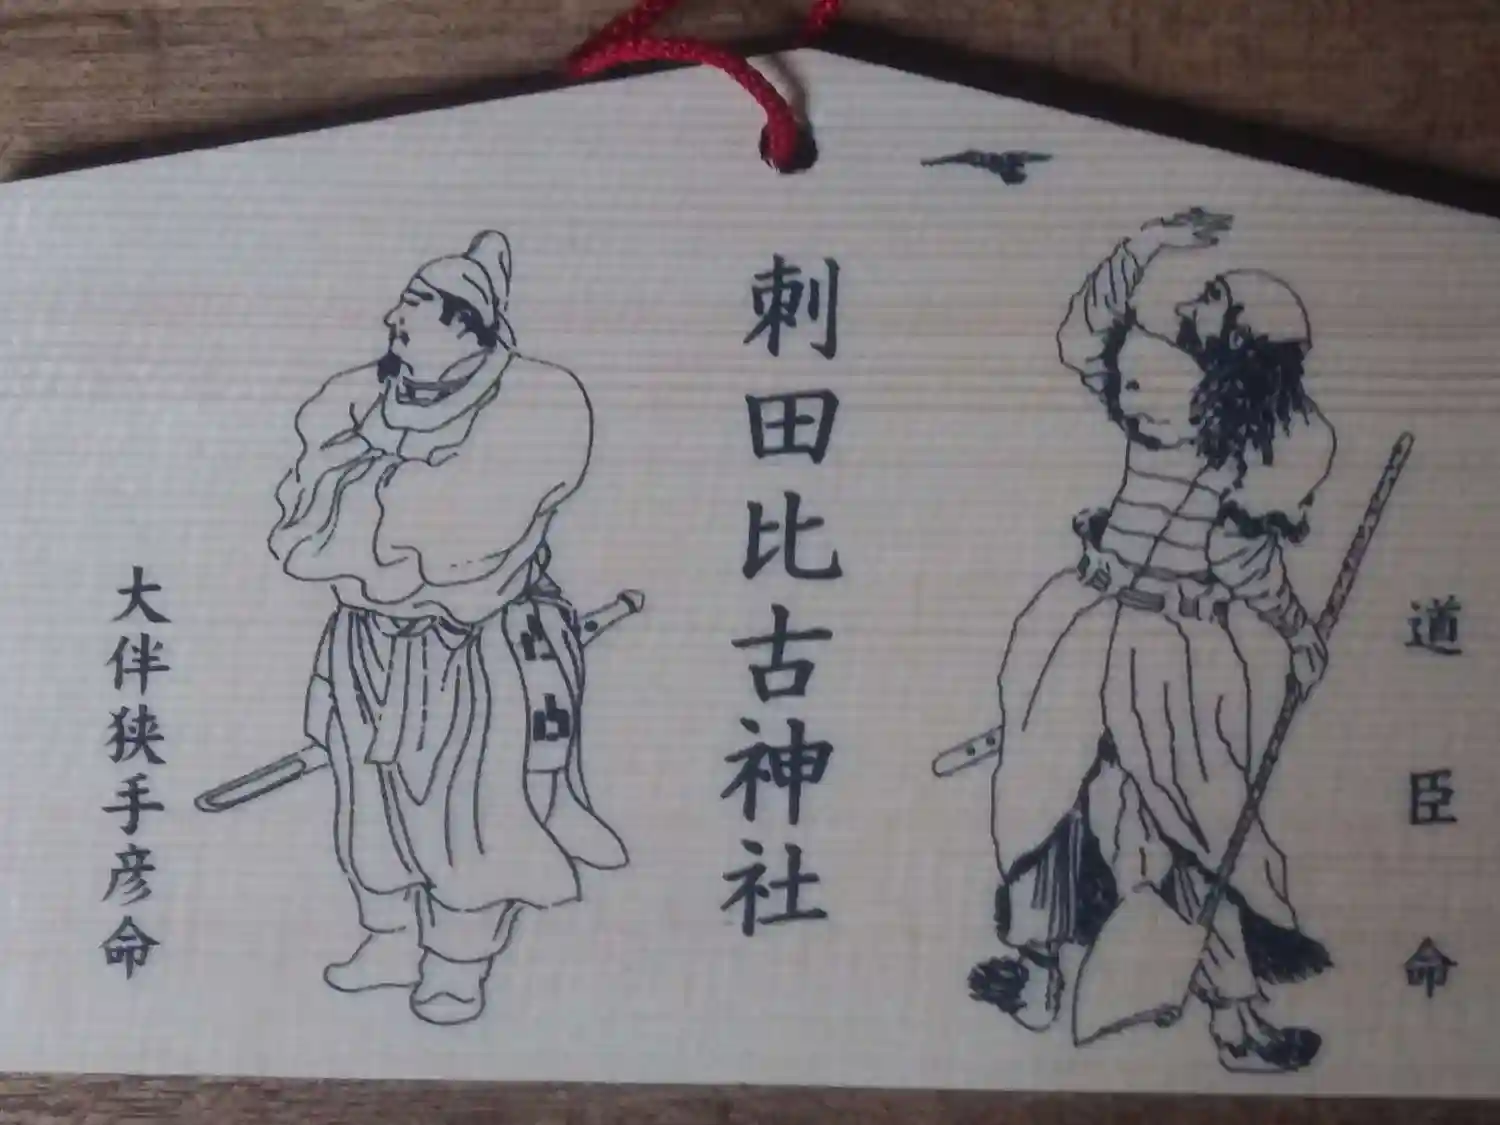 道臣命
刺田比古神社
大伴狭手彦命